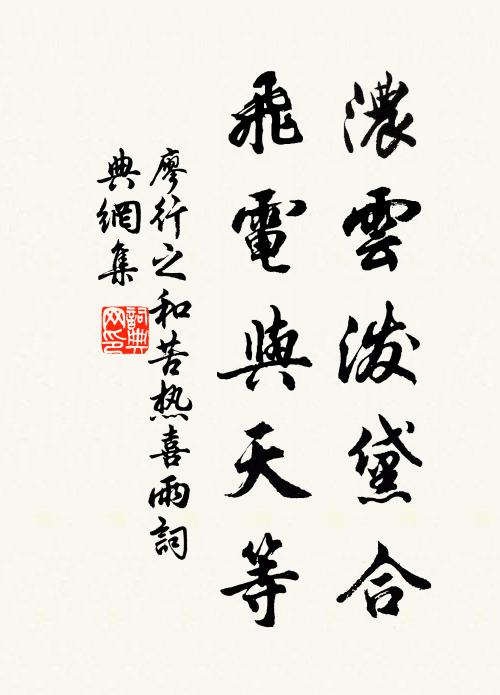 濃雲泼黛合
飛電與天等
廖行之和苦热喜雨詞
典網集
詞典网印